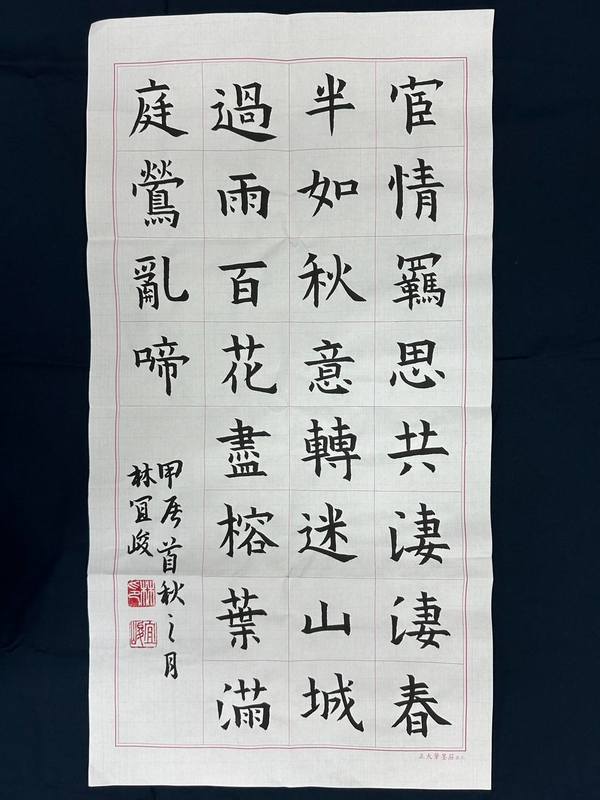 宦情羈思共淒淒春
半如秋意轉迷山城
過雨百花盡榕葉滿
庭鶯亂啼
甲辰首秋之月
林宜峻
林印
宜峻
正大筆墨莊